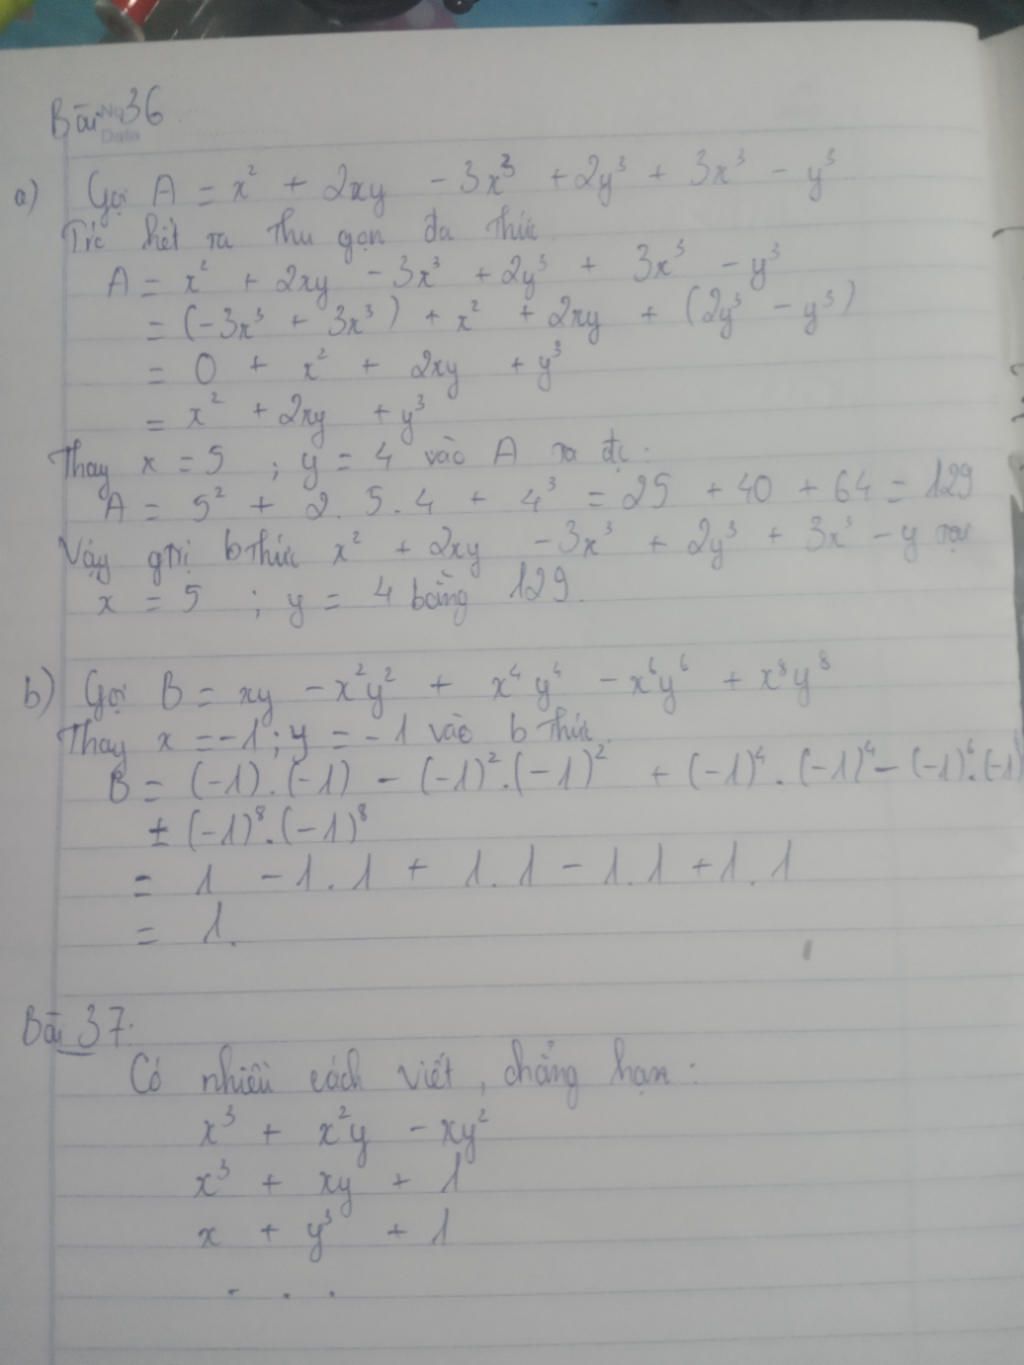 Bài 36
a) Gọi A = x² + 2xy - 3x³ + 2y³ + 3x³ - y³
Trc hết ta thu gọn đa thức
A = x² + 2xy - 3x³ + 2y³ + 3x³ - y³
= (-3x³ + 3x³) + x² + 2xy + (2y³ - y³)
= 0 + x² + 2xy + y³
= x² + 2xy + y³
Thay x = 5 ; y = 4 vào A ta đc :
A = 5² + 2. 5. 4 + 4³ = 25 + 40 + 64 = 129
Vậy gtrị b thức x² + 2xy - 3x³ + 2y³ + 3x³ - y tại
x = 5 ; y = 4 bằng 129.
b) Gọi B = xy - x²y² + x⁴y⁴ - x⁶y⁶ + x⁸y⁸
Thay x = -1 ; y = -1 vào b thức.
B = (-1).(-1) - (-1)².(-1)² + (-1)⁴.(-1)⁴ - (-1)⁶.(-1)
± (-1)⁸.(-1)⁸
= 1 - 1.1 + 1.1 - 1.1 + 1.1
= 1.
Bài 37.
Có nhiều cách viết, chẳng hạn :
x³ + x²y - xy²
x³ + xy + 1
x + y³ + 1
. . .